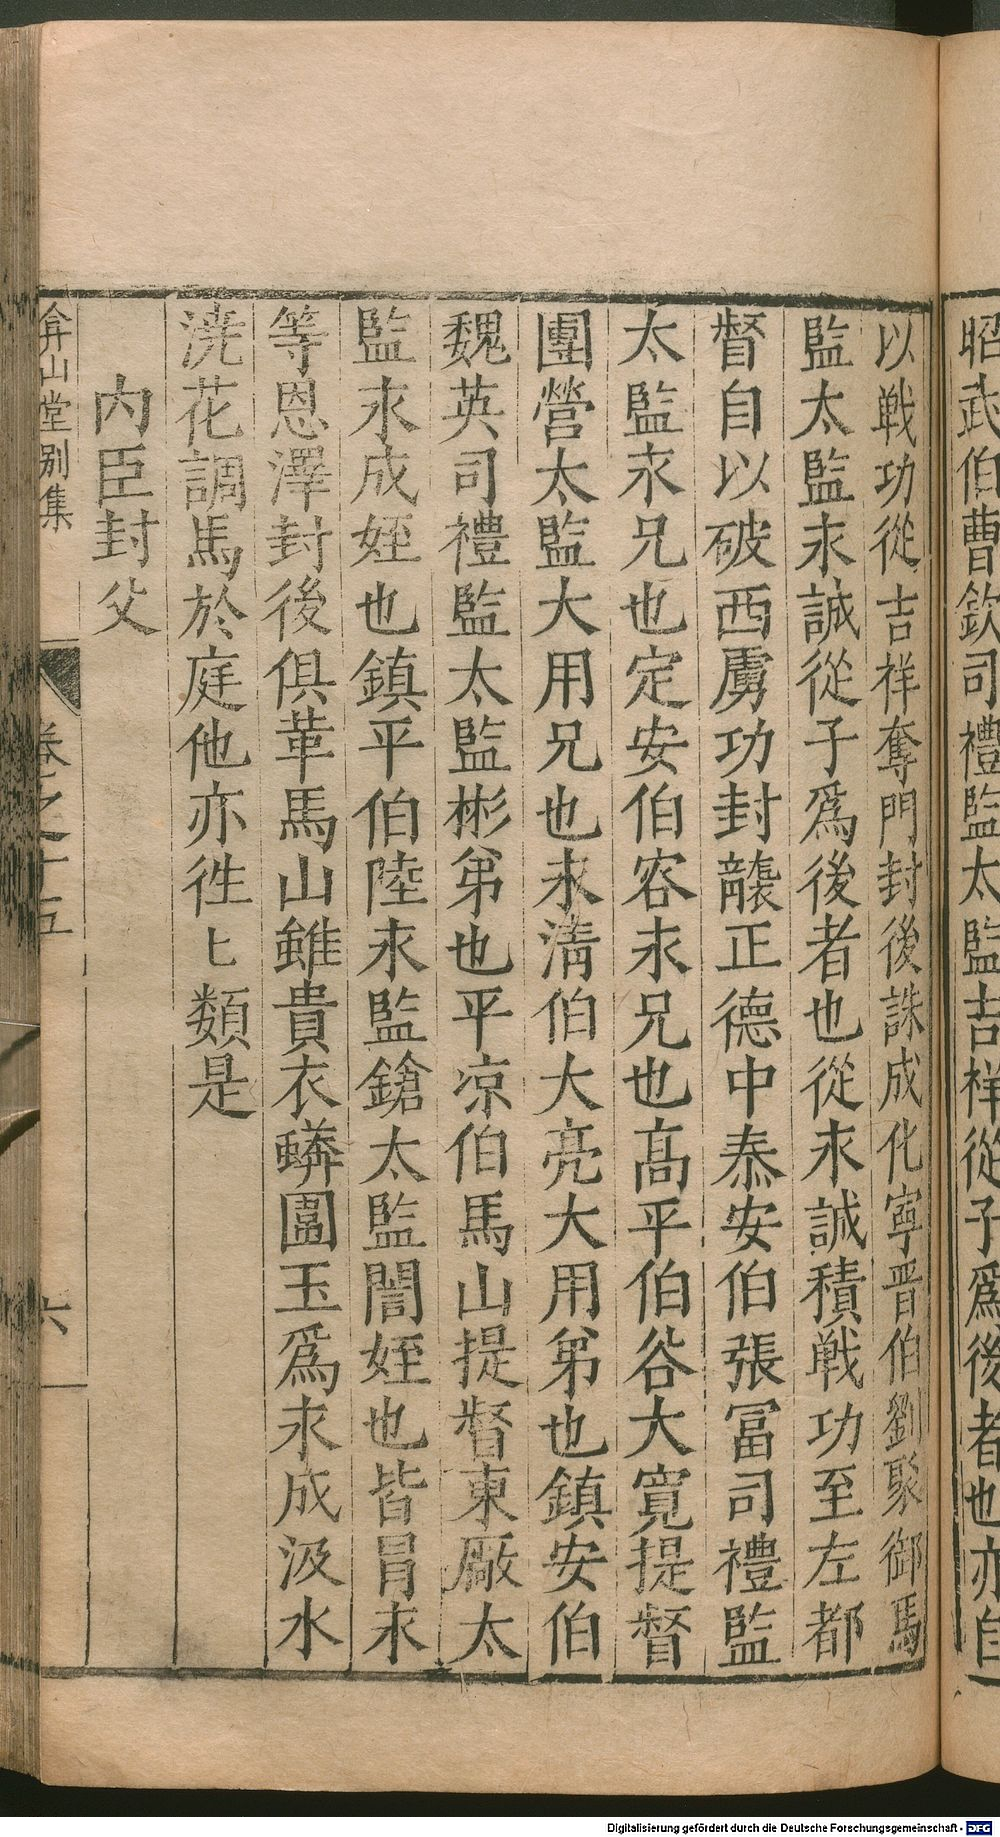 昭武伯曹欽司禮監太監吉祥從子爲後者也亦自
以戦功從吉祥奪門封後誅成化寧晋伯劉聚御馬
監太監永誠從子爲後者也從永誠積戦功至左都
督自以破西虜功封襲正德中泰安伯張冨司禮監
太監永兄也定安伯容永兄也髙平伯谷大寛提督
團營太監大用兄也永淸伯大亮大用弟也鎮安伯
魏英司禮監太監彬弟也平凉伯馬山提督東厰太
監永成姪也鎮平伯陸永監鎗太監誾姪也皆冒永
等恩澤封後俱革馬山雖貴衣蟒圍玉爲永成汲水
澆花調馬於庭他亦徃〻類是
内臣封父
弇山堂别集
卷之十五
六
Digitalisierung gefördert durch die Deutsche Forschungsgemeinschaft - DFG